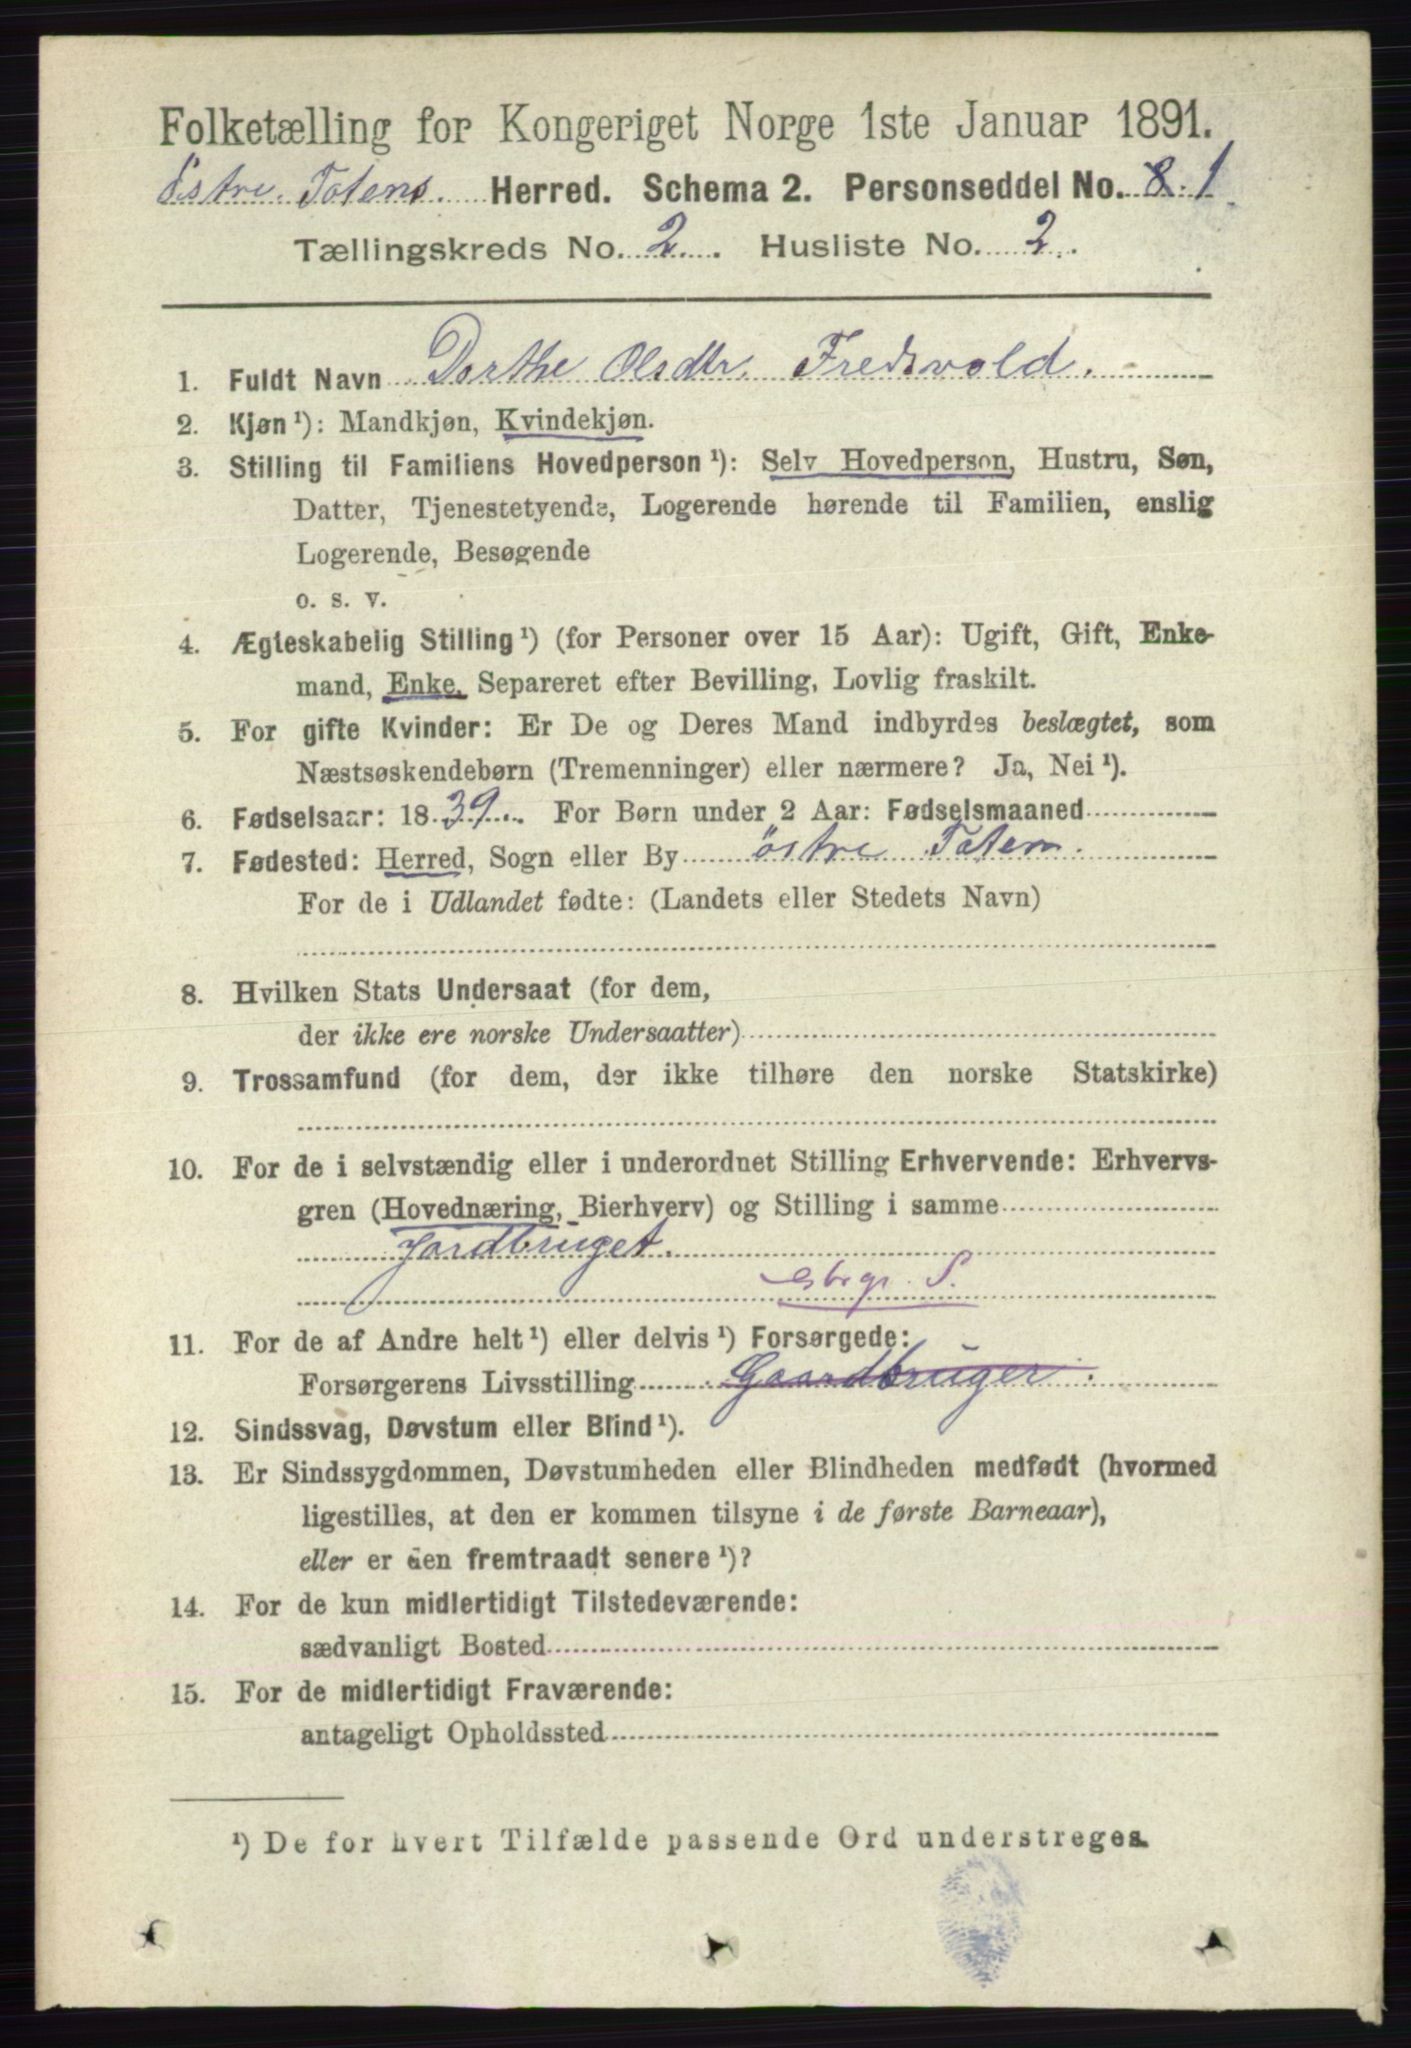 Folketælling for Kongeriget Norge 1ste Januar 1891.
Östre Totens Herred. Schema 2. Personseddel No. 8. 1
Tællingskreds No. 2. Husliste No. 2.
1. Fuldt Navn Dorthe Olsdtr. Fredsvold.
2. Kjøn¹): Mandkjøn, Kvindekjøn.
3. Stilling til Familiens Hovedperson¹): Selv Hovedperson, Hustru, Søn,
Datter, Tjenestetyende, Logerende hørende til Familien, enslig
Logerende, Besøgende
o. s. v.
4. Ægteskabelig Stilling¹) (for Personer over 15 Aar): Ugift, Gift, Enke-
mand, Enke, Separeret efter Bevilling, Lovlig fraskilt.
5. For gifte Kvinder: Er De og Deres Mand indbyrdes beslægtet, som
Næstsøskendebørn (Tremenninger) eller nærmere? Ja, Nei¹).
6. Fødselsaar: 1839. For Børn under 2 Aar: Fødselsmaaned
7. Fødested: Herred, Sogn eller By östre Toten.
For de i Udlandet fødte: (Landets eller Stedets Navn)
8. Hvilken Stats Undersaat (for dem,
der ikke ere norske Undersaatter)
9. Trossamfund (for dem, der ikke tilhøre den norske Statskirke)
10. For de i selvstændig eller i underordnet Stilling Erhvervende: Erhvervs-
gren (Hovednæring, Bierhverv) og Stilling i samme
Jordbruget.
gbrgr. S.
11. For de af Andre helt¹) eller delvis¹) Forsørgede:
Forsørgerens Livsstilling Gaardbruger.
12. Sindssvag, Døvstum eller Blind¹).
13. Er Sindssygdommen, Døvstumheden eller Blindheden medfødt (hvormed
ligestilles, at den er kommen tilsyne i de første Barneaar),
eller er den fremtraadt senere¹)?
14. For de kun midlertidigt Tilstedeværende:
sædvanligt Bosted
15. For de midlertidigt Fraværende:
antageligt Opholdssted
¹) De for hvert Tilfælde passende Ord understreges.